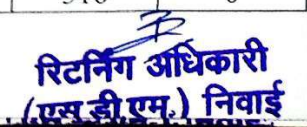 रिटर्निंग अधिकारी
(एस.डी.एम.) निवाई